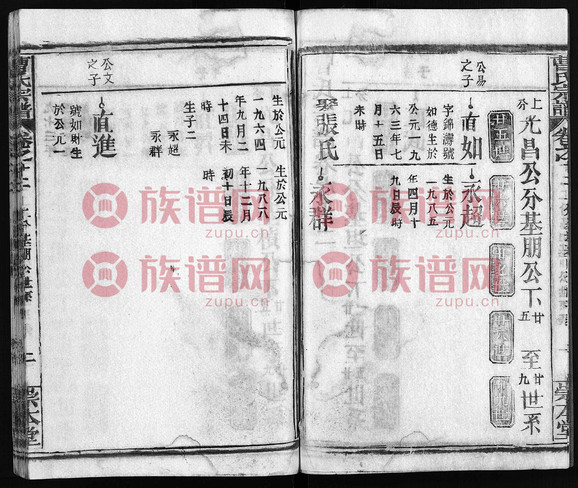 上分光昌公分基朋公下廿五至廿九世系
廿五世
公易之子
直如
永超
字錦濤號
如德生於
公元一九
六三年七
九日辰時
生於公元
一九八五
年四月十
未時
娶張氏
永群
生於公元
一九八八
年十二月
初十日辰
時
生於公元
一九六四
年九月二
十四日未
時
生子二
永超
永群
公文之子
直進
號如財生
於公元一
曹氏宗譜
崇本堂
族谱网
zupu.cn
族谱网
zupu.cn
族谱网
zupu.cn
族谱网
zupu.cn
族谱网
zupu.cn
族谱网
zupu.cn